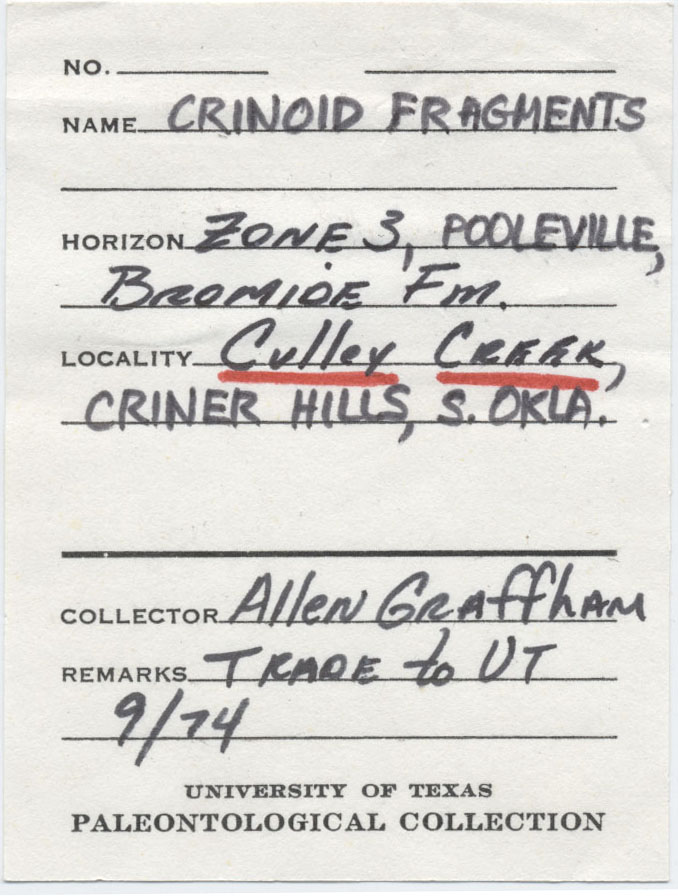 NO.
NAME CRINOID FRAGMENTS
HORIZON ZONE 3, POOLEVILLE,
BROMIDE Fm.
LOCALITY Culley CREEK,
CRINER HILLS, S. OKLA.
COLLECTOR Allen GRAffhAM
REMARKS TRADE to UT
9/74
UNIVERSITY OF TEXAS
PALEONTOLOGICAL COLLECTION